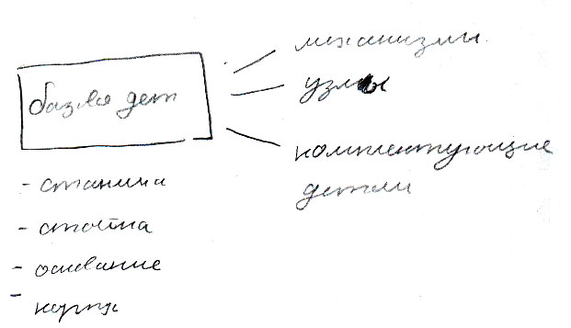 механизмы.
узлы
базов дет
комплектующие
детали
- станина
- стойка
- основание
- корпус